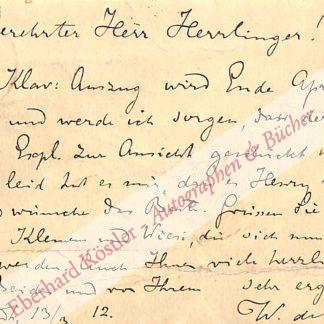 erehrter Herr Herrlinger!
Klav: Auszug wird Ende Apr
und werde ich sorgen, dass der
Expl. zur Ansicht geschickt w
leid tut es mir, dass es Henry
wünsche das Beste. Grüssen Sie
Klemen und Wiesi, die sich nun
werden. Auch Ihnen viel herzli
Beide und von Ihrem sehr erg
13/3 12. W. de
Eberhard Köstler Autographen & Bücher